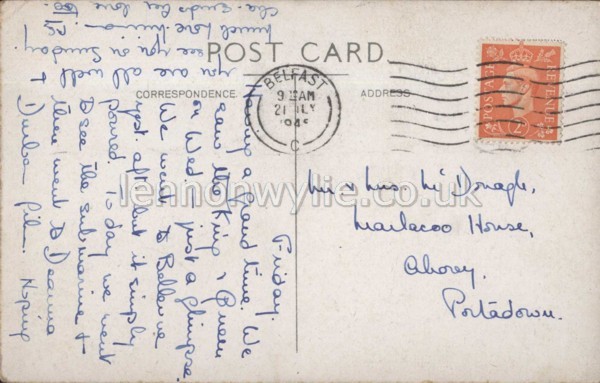 POST CARD
CORRESPONDENCE
ADDRESS
BELFAST
9 AM
21 JLY
194
C
POSTAGE
REVENUE
Friday.
Having a grand time. We
saw the King & Queen
on Wed – just a glimpse.
We went to Bellevue
yest. after but it simply
poured. To day we went
to see the submarine &
then went to Deanna
Durbin film. Hoping
you are all well &
see you on Sunday
much love
sends her love
too.
Mr & Mrs. Mc Donagh,
Marlacoo House,
Ahorey.
Portadown.
lennonwylie.co.uk